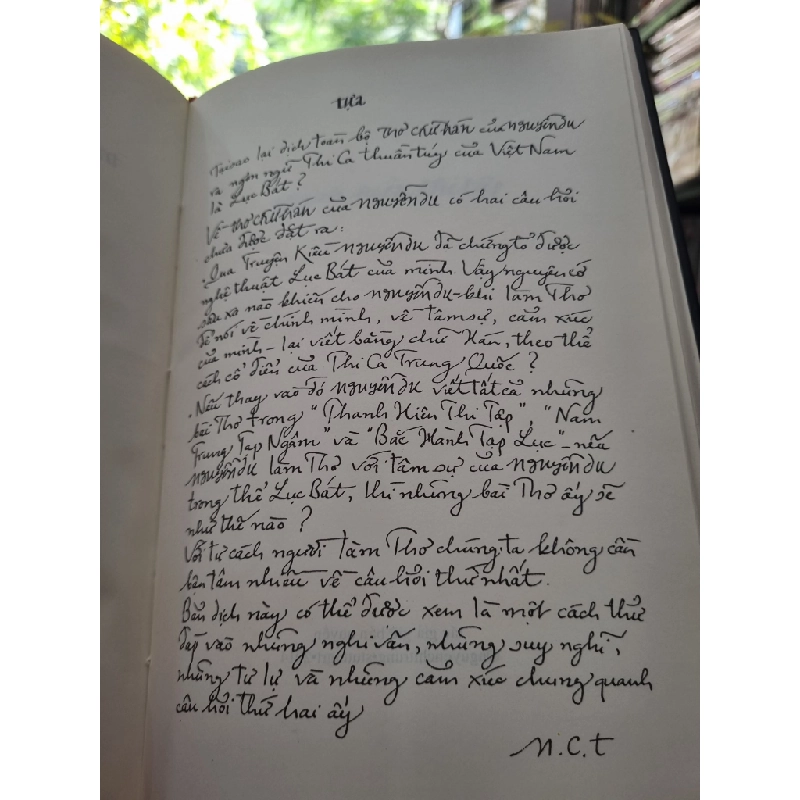 TỰA
Tại sao lại dịch toàn bộ Thơ chữ Hán của NGUYỄN DU
ra ngôn ngữ Thi Ca thuần túy của Việt Nam
là Lục Bát ?
Về Thơ chữ Hán của NGUYỄN DU có hai câu hỏi
chưa được đặt ra:
. Qua Truyện Kiều NGUYỄN DU đã chứng tỏ được
nghệ thuật Lục Bát của mình Vậy nguyên cớ
sâu xa nào khiến cho NGUYỄN DU - khi làm Thơ
để nói về chính mình, về tâm sự, cảm xúc
của mình - lại viết bằng chữ Hán, theo thể
cách cổ điển của Thi Ca Trung Quốc ?
. Nếu thay vào đó NGUYỄN DU viết tất cả những
bài Thơ trong "Thanh Hiên Thi Tập", "Nam
Trung Tạp Ngâm" và "Bắc Hành Tạp Lục" - nếu
NGUYỄN DU làm Thơ với tâm sự của NGUYỄN DU
trong thể Lục Bát, thì những bài Thơ ấy sẽ
như thế nào ?
Với tư cách người làm Thơ chúng ta không cần
bận tâm nhiều về câu hỏi thứ nhất.
Bản dịch này có thể được xem là một cách thử
đáp vào những nghi vấn, những suy nghĩ,
những tư lự và những cảm xúc chung quanh
câu hỏi thứ hai ấy
N.C.T